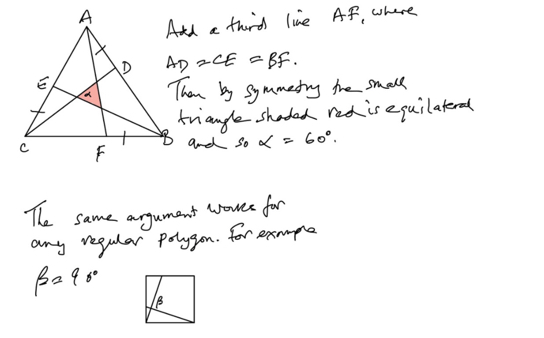 A
D
E
α
C
F
B
Add a third line AF, where
AD = CE = BF.
Then by symmetry the small
triangle shaded red is equilateral
and so α = 60°.
The same argument works for
any regular polygon. For example
β = 90°
β